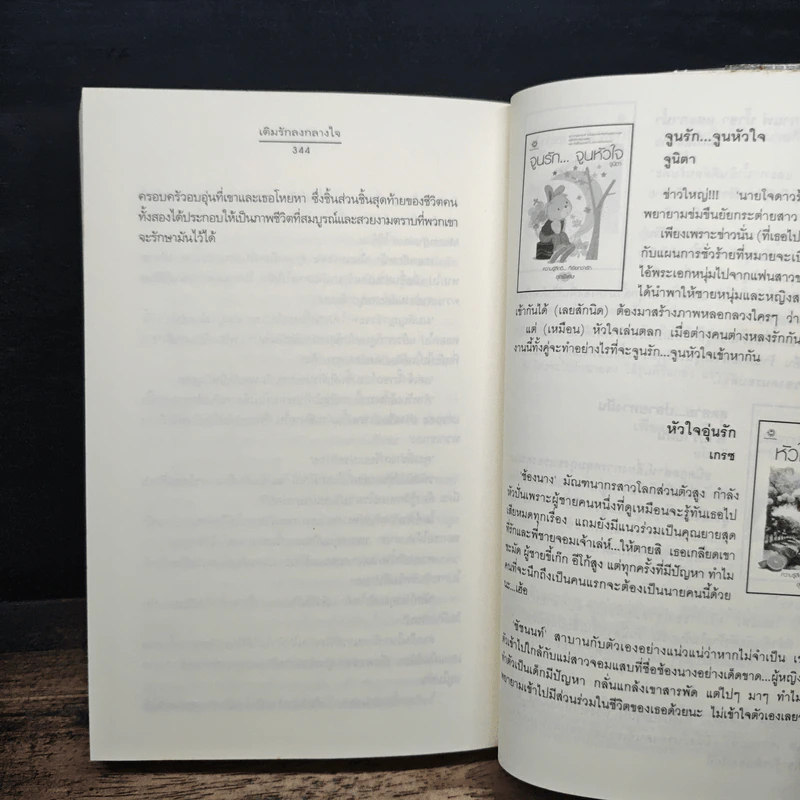 เติมรักลงกลางใจ
344
ครอบครัวอบอุ่นที่เขาและเธอโหยหา ซึ่งชิ้นส่วนชิ้นสุดท้ายของชีวิตคน
ทั้งสองได้ประกอบให้เป็นภาพชีวิตที่สมบูรณ์และสวยงามตราบที่พวกเขา
จะรักษามันไว้ได้
จูนรัก... จูนหัวใจ
จูนิตา
จูนรัก...จูนหัวใจ
จูนิตา
ข่าวใหญ่!!! 'นายโจดาวร้
พยายามข่มขืนยัยกระต่ายสาว
เพียงเพราะข่าวนั่น (ที่เธอไป
กับแผนการชั่วร้ายที่หมายจะเป็
ไอ้พระเอกหนุ่มไปจากแฟนสาวข
ได้นำพาให้ชายหนุ่มและหญิงส
เข้ากันได้ (เลยสักนิด) ต้องมาสร้างภาพหลอกลวงใครๆ ว่า
แต่ (เหมือน) หัวใจเล่นตลก เมื่อต่างคนต่างหลงรักกัน
งานนี้ทั้งคู่จะทำอย่างไรที่จะจูนรัก...จูนหัวใจเข้าหากัน
หัวใจอุ่นรัก
เกรซ
หัวใ
'ช้องนาง' มัณฑนากรสาวโลกส่วนตัวสูง กำลัง
หัวปั่นเพราะผู้ชายคนหนึ่งที่ดูเหมือนจะรู้ทันเธอไป
เสียหมดทุกเรื่อง แถมยังมีแนวร่วมเป็นคุณยายสุด
ที่รักและพี่ชายจอมเจ้าเล่ห์...ให้ตายสิ เธอเกลียดเขา
ชะมัด ผู้ชายขี้เก๊ก อีโก้สูง แต่ทุกครั้งที่มีปัญหา ทำไม
คนที่จะนึกถึงเป็นคนแรกจะต้องเป็นนายคนนี้ด้วย
นะ...เฮ้อ
'ชัชนนท์' สาบานกับตัวเองอย่างแน่วแน่ว่าหากไม่จำเป็น เ
ตัวเข้าไปใกล้กับแม่สาวจอมแสบที่ชื่อช้องนางอย่างเด็ดขาด...ผู้หญิง
ทำตัวเป็นเด็กมีปัญหา กลั่นแกล้งเขาสารพัด แต่ไปๆ มาๆ ทำไม
พยายามเข้าไปมีส่วนร่วมในชีวิตของเธอด้วยนะ ไม่เข้าใจตัวเองเลย